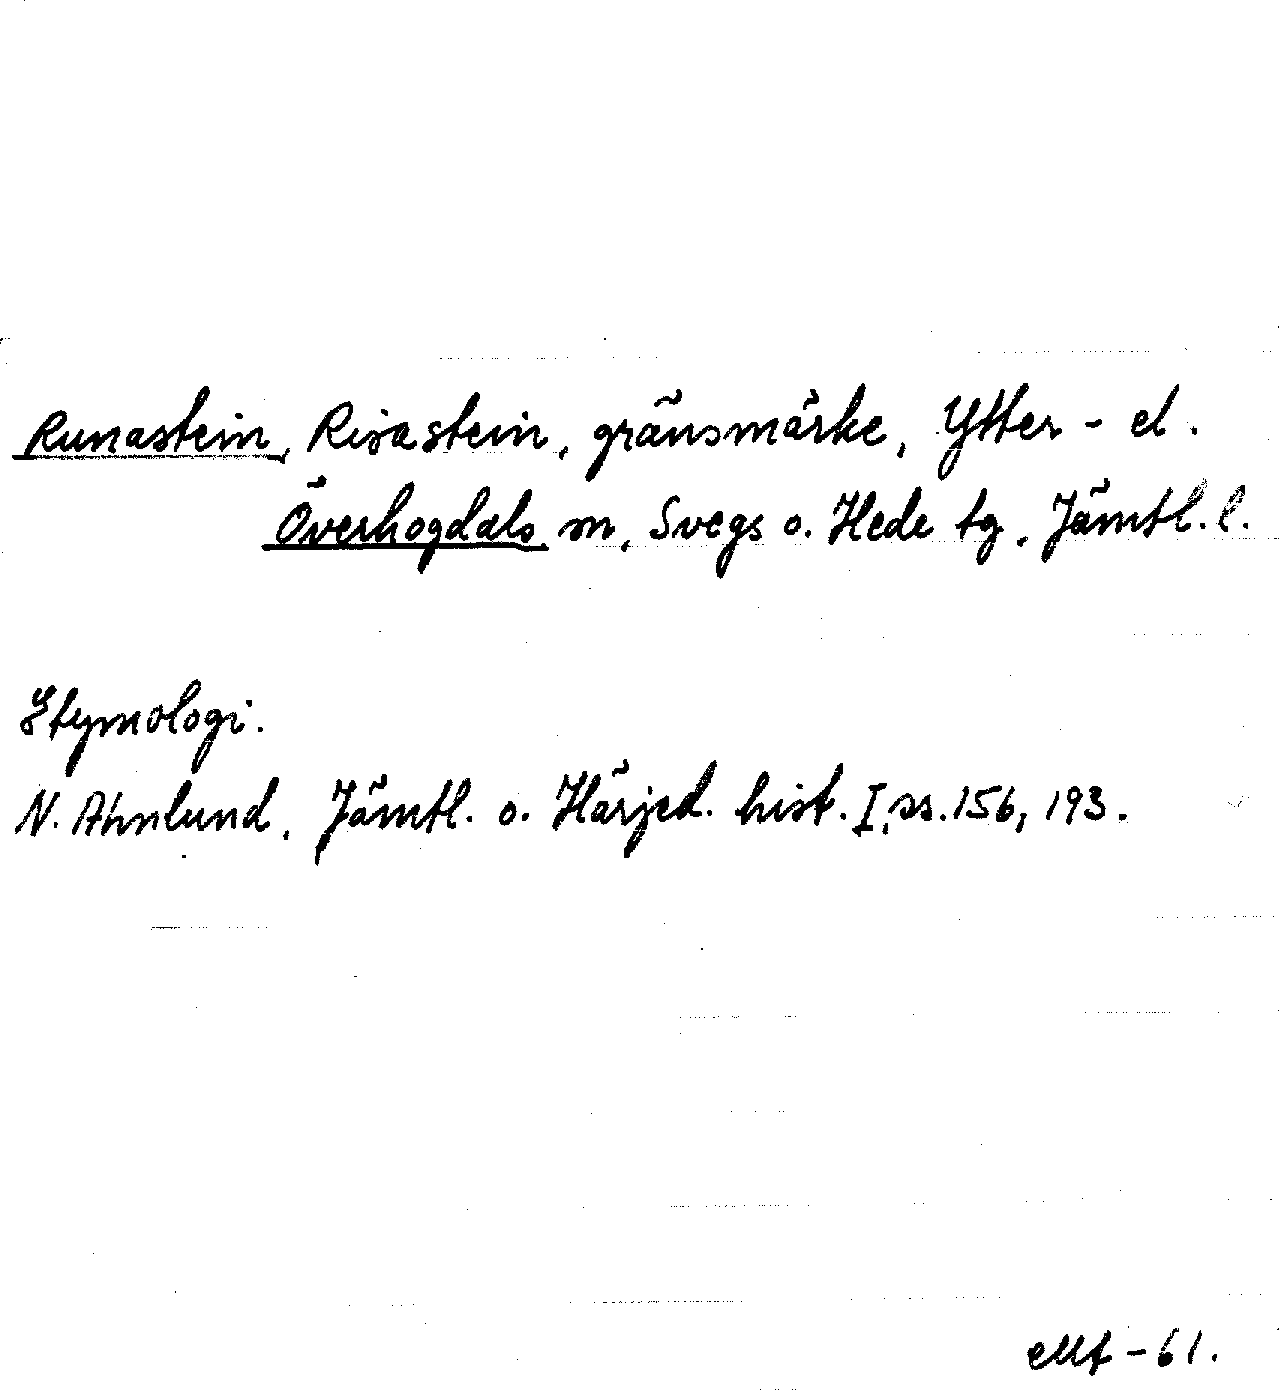 Runastein, Risastein, gränsmärke, Ytter- el.
Överhogdals sn, Svegs o. Hede tg, Jämtl. l.
Etymologi.
N. Ahnlund, Jämtl. o. Härjed. hist. I, ss. 156, 193.
-61.